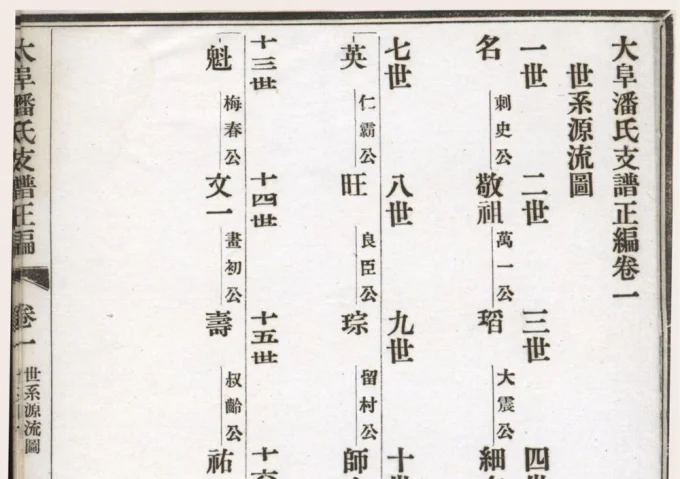 大阜潘氏支譜正編卷一
世系源流圖
一世 二世 三世 四世
名 刺史公 敬祖 萬一公 瑫 大震公 細
七世 八世 九世 十世
英 仁霸公 旺 良臣公 琮 留村公 師
十三世 十四世 十五世 十六
魁 梅春公 文一 畫初公 壽 叔齡公 祐
大阜潘氏支譜正編 卷一 世系源流圖